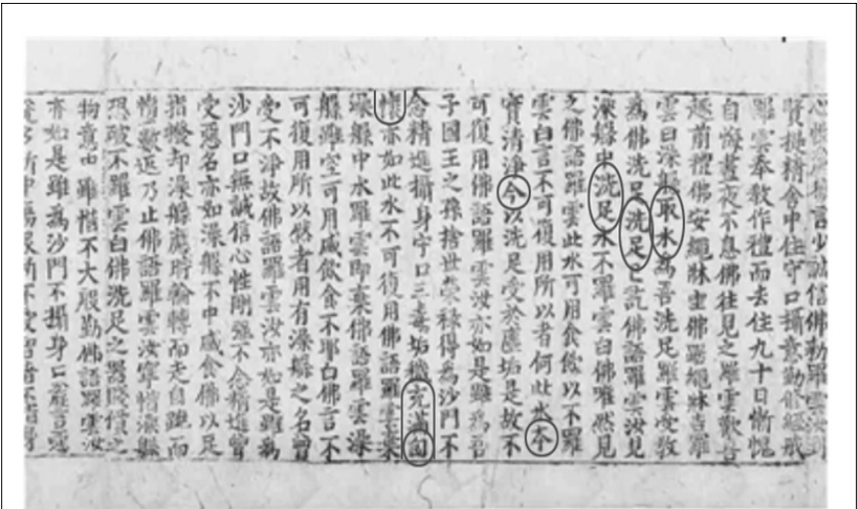 心性麁獷言少誠信佛勅羅雲汝到
賢提精舍中住守口攝意勤修經戒
羅雲奉教作禮而去住九十日慚愧
自悔晝夜不息佛往見之羅雲歡喜
趣前禮佛安繩牀坐佛踞繩牀告羅
雲曰澡槃取水為吾洗足羅雲受教
為佛洗足洗足已訖佛語羅雲汝見
澡槃中洗足水不羅雲白佛唯然見
之佛語羅雲此水可用食飲以不羅
雲白言不可復用所以者何此水本
實清淨今以洗足受於塵垢是故不
可復用佛語羅雲汝亦如是雖為吾
子國王之孫捨世榮祿得為沙門不
念精進攝身守口三毒垢穢充滿匈
懷亦如此水不可復用佛語羅雲棄
澡槃中水羅雲即棄佛語羅雲澡
槃雖空可用盛飲食不耶白佛言不
可復用所以然者用有澡槃之名曾
受不淨故佛語羅雲汝亦如是雖為
沙門口無誠信心性剛強不念精進曾
受惡名亦如澡槃不中盛食佛以足
指撥却澡槃應時輪轉而走自跳而
墮數返乃止佛語羅雲汝寧惜澡槃
恐破不羅雲白佛洗足之器賤價之
物意中雖惜不大慇懃佛語羅雲汝
亦如是雖為沙門不攝身口麁言惡
說多所中傷眾所不愛智者不惜